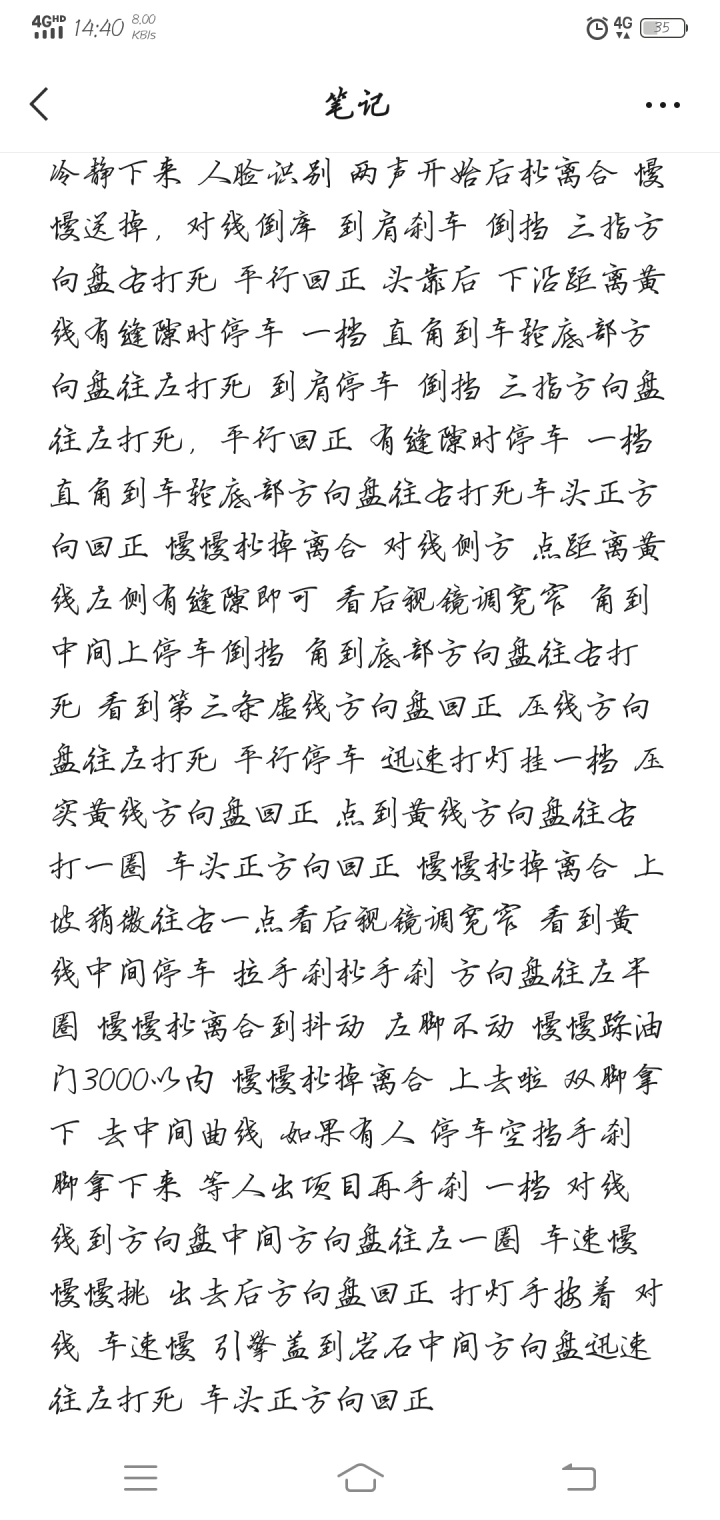 4GHD 14:40 8.00 KB/s 4G 35
笔记
冷静下来 人脸识别 两声开始后松离合 慢
慢送掉，对线倒库 到肩刹车 倒挡 三指方
向盘右打死 平行回正 头靠后 下沿距离黄
线有缝隙时停车 一档 直角到车轮底部方
向盘往左打死 到肩停车 倒挡 三指方向盘
往左打死，平行回正 有缝隙时停车 一档
直角到车轮底部方向盘往右打死车头正方
向回正 慢慢松掉离合 对线侧方 点距离黄
线左侧有缝隙即可 看后视镜调宽窄 角到
中间上停车倒挡 角到底部方向盘往右打
死 看到第三条虚线方向盘回正 压线方向
盘往左打死 平行停车 迅速打灯挂一档 压
实黄线方向盘回正 点到黄线方向盘往右
打一圈 车头正方向回正 慢慢松掉离合 上
坡稍微往右一点看后视镜调宽窄 看到黄
线中间停车 拉手刹松手刹 方向盘往左半
圈 慢慢松离合到抖动 左脚不动 慢慢踩油
门3000以内 慢慢松掉离合 上去啦 双脚拿
下 去中间曲线 如果有人 停车空挡手刹
脚拿下来 等人出项目再手刹 一档 对线
线到方向盘中间方向盘往左一圈 车速慢
慢慢挑 出去后方向盘回正 打灯手按着 对
线 车速慢 引擎盖到岩石中间方向盘迅速
往左打死 车头正方向回正